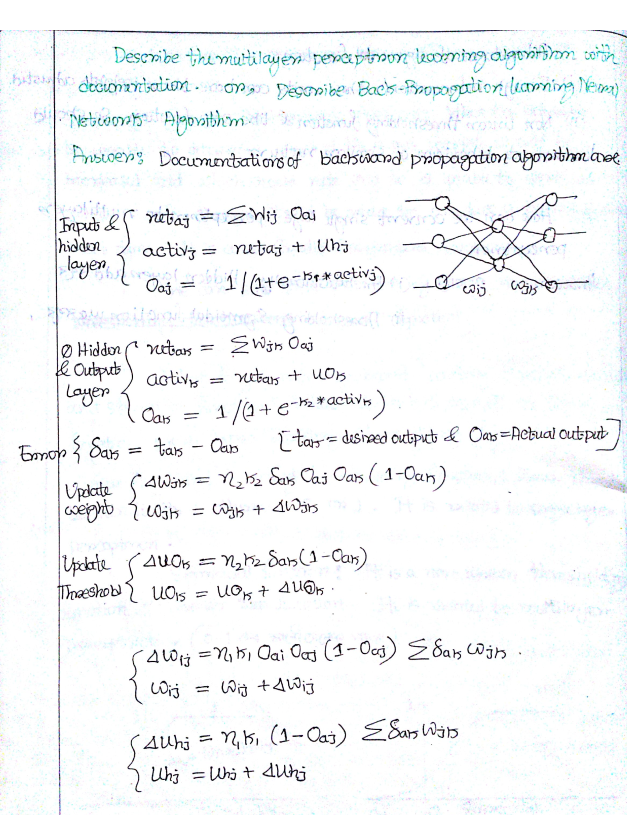 Describe the multilayer perceptron learning algorithm with
documentation. or, Describe Back-Propagation (learning Neural)
Networks Algorithm.
Answer: Documentations of backward propagation algorithm are:
Input & hidden layer
netaj = ΣWij Oai
activj = netaj + Uhj
Oaj = 1/(1+e^-k₁*activj)
wij wjk
Ø Hidden & Output Layer
netak = ΣWjk Oaj
activk = netak + UOk
Oak = 1/(1+e^-k₂*activk)
Error { δak = tak - Oak [tak = desired output & Oak = Actual output]
Update weight
ΔWjk = η₂k₂ δak Oaj Oak (1-Oak)
Wjk = Wjk + ΔWjk
Update Threshold
ΔUOk = η₂k₂ δak(1-Oak)
UOk = UOk + ΔUOk.
ΔWij = η₁k₁ Oai Oaj (1-Oaj) Σδak Wjk
Wij = Wij + ΔWij
ΔUhj = η₁k₁ (1-Oaj) Σδak Wjk
Uhj = Uhj + ΔUhj